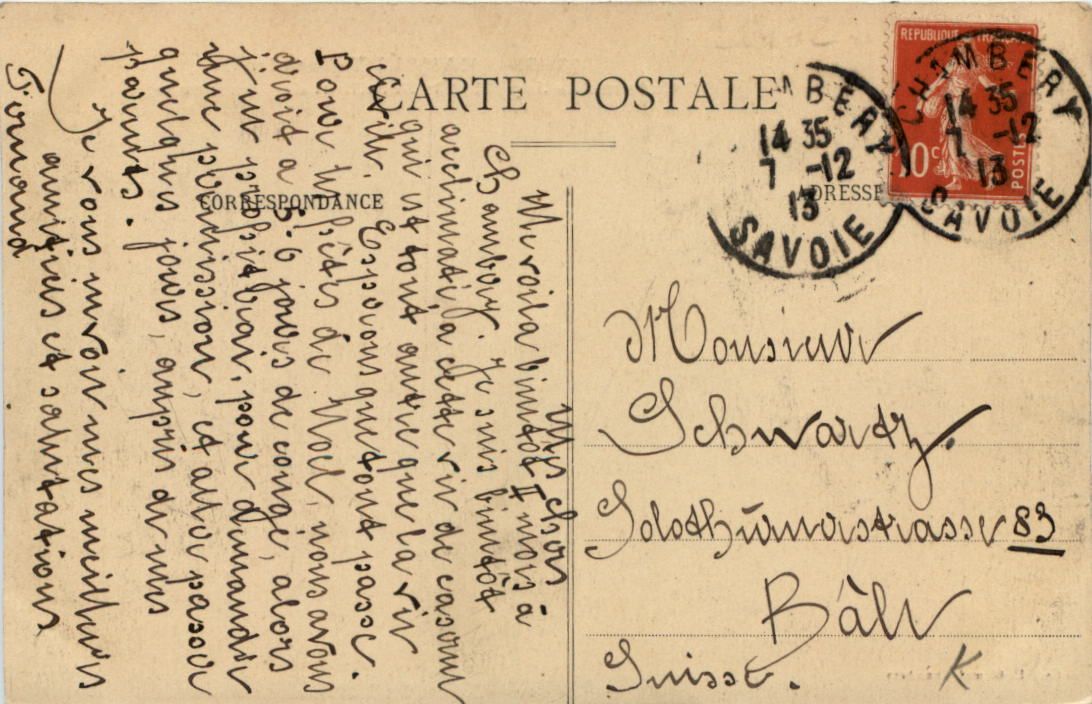 CARTE POSTALE
CORRESPONDANCE
ADRESSE
REPUBLIQUE FRANÇAISE
10c
POSTES
CHAMBERY
14 35
7 -12
13
SAVOIE
CHAMBERY
14 35
7 -12
13
SAVOIE
Mes chers
Me voila bientôt II mois à
Chambery. Je suis bientôt
acclimaté a cette vie de casern
qui est tout autre que la vie
civil. Esperons que tout passe.
Pour les fêtes de Noel, nous avons
droit a 5-6 jours de congé, alors
j'en profiterai, pour demander
une permission, et aller passer
quelques jours, aupres de mes
parents.
Je vous envoie mes meilleurs
amitiés et salutations
Fernand
Monsieur
Schwartz.
Solothurnerstrasse 83
Bâle
Suisse.
K